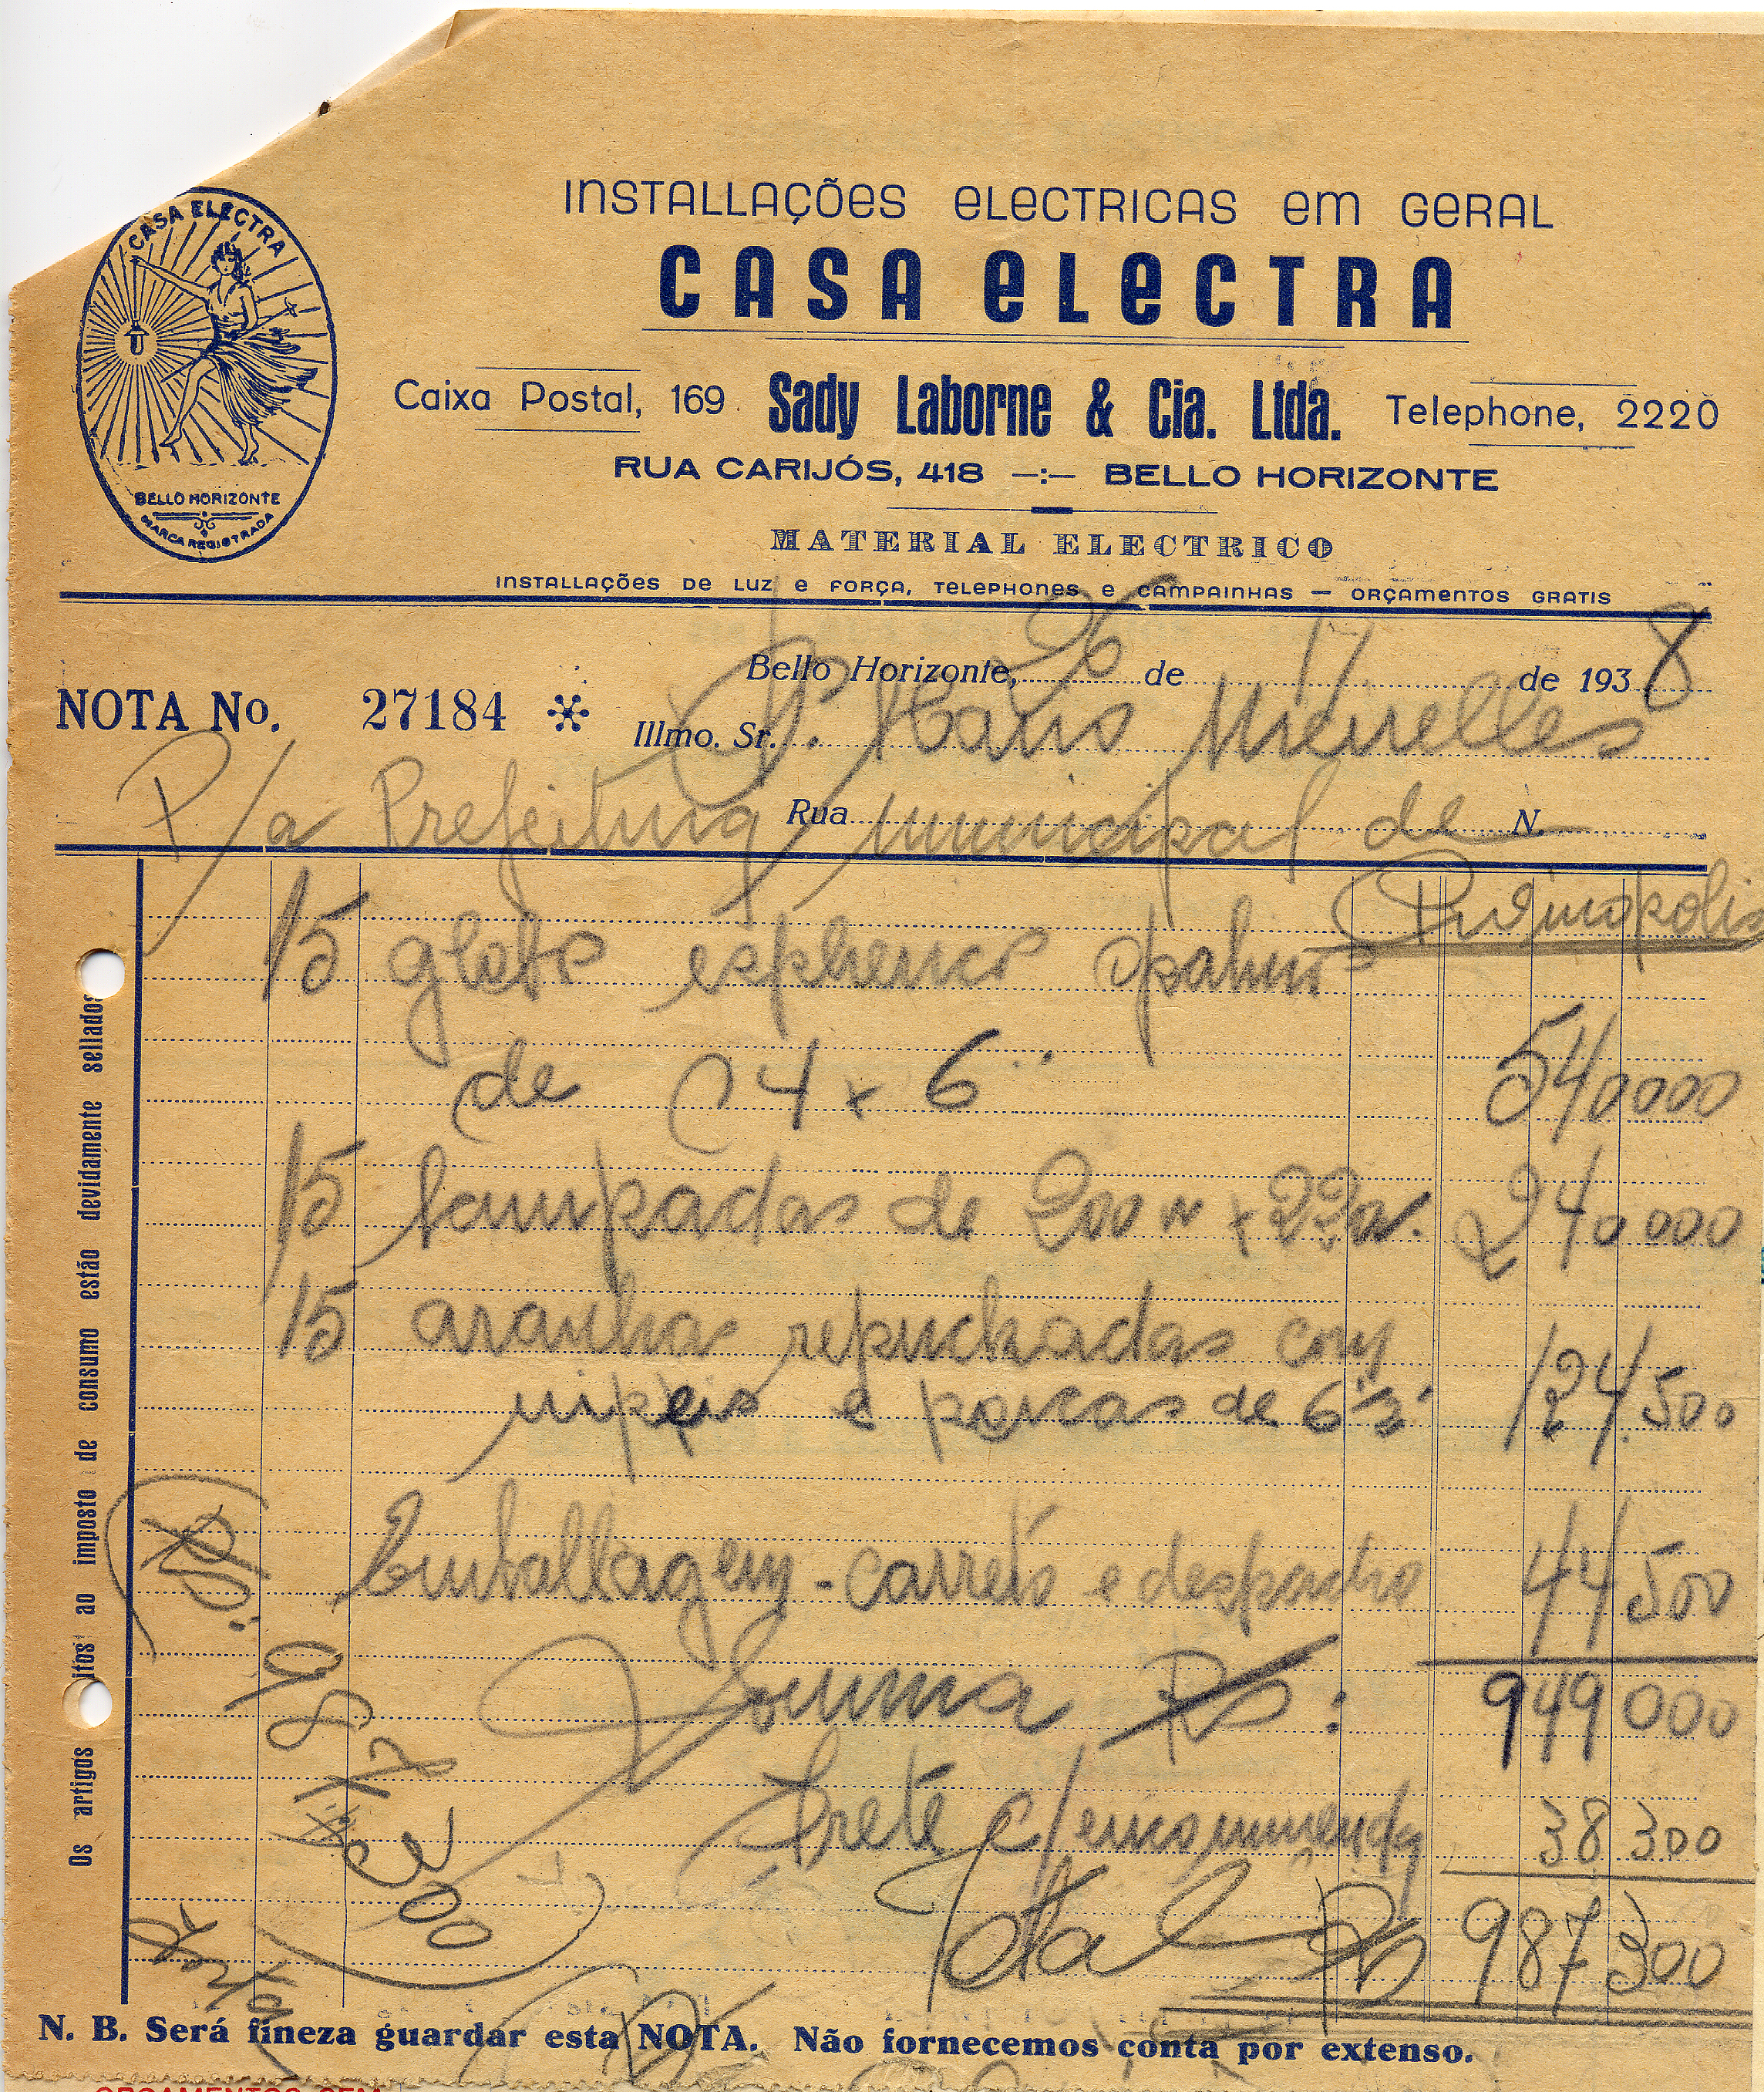 CASA ELECTRA
BELLO HORIZONTE
MARCA REGISTRADA
INSTALLAÇÕES ELECTRICAS EM GERAL
CASA ELECTRA
Caixa Postal, 169 Sady Laborne & Cia. Ltda. Telephone, 2220
RUA CARIJÓS, 418 —:— BELLO HORIZONTE
MATERIAL ELECTRICO
INSTALLAÇÕES DE LUZ E FORÇA, TELEPHONES E CAMPAINHAS — ORÇAMENTOS GRATIS
Bello Horizonte, 26 de de 1938
NOTA No. 27184 Illmo. Sr.
P/a Prefeitura Rua Municipal de N.
15 globos esphericos opalinos
de 14 x 6" 540 000
15 lampadas de 200 w x 220v. 240 000
15 aranhas repuchadas com
nipeis e porcas de 124.500
Emballagem - carreto e despacho 44 500
Somma Rs: 949 000
Frete c/ encommenda 38 300
Total Rs 987 300
Rs: 987 300
Os artigos itos ao imposto de consumo estão devidamente sellados
N. B. Será fineza guardar esta NOTA. Não fornecemos conta por extenso.